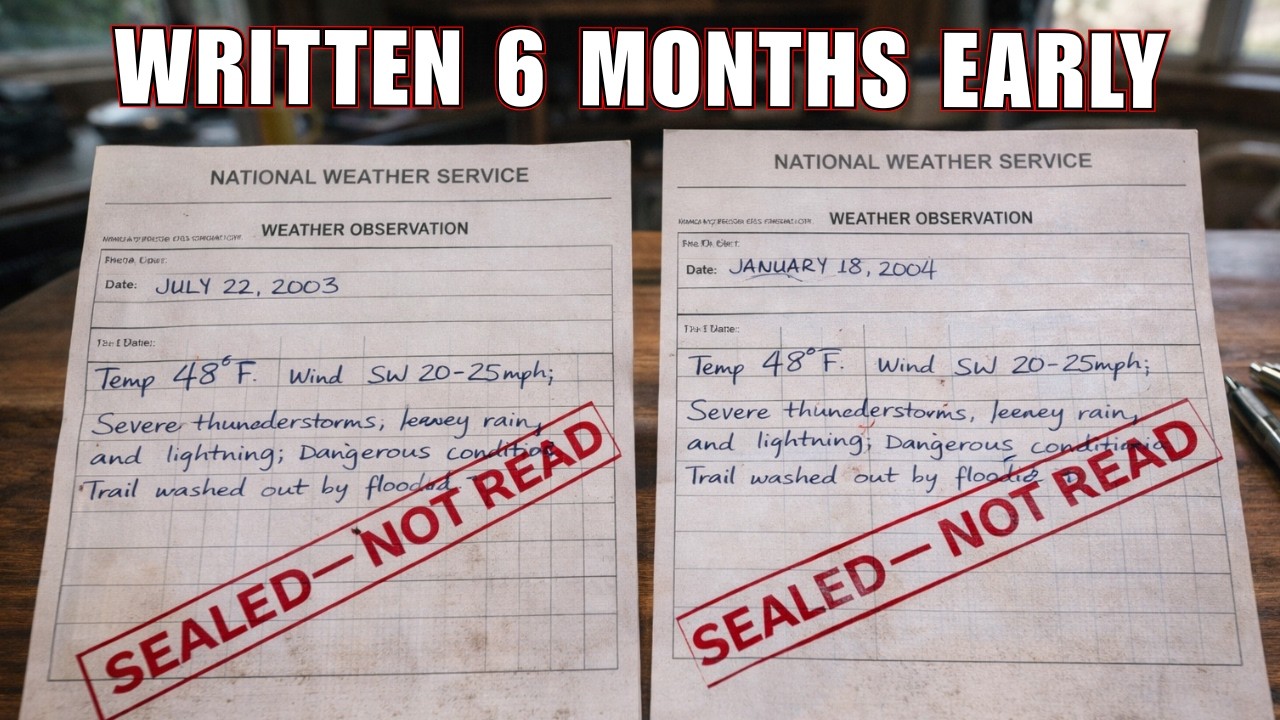 WRITTEN 6 MONTHS EARLY
NATIONAL WEATHER SERVICE
WEATHER OBSERVATION
Date: JULY 22, 2003
Temp 48°F. Wind SW 20-25mph;
Severe thunederstorms, rain,
and lightning; Dangerous
Trail washed out by
SEALED— NOT READ
NATIONAL WEATHER SERVICE
WEATHER OBSERVATION
Date: JANUARY 18, 2004
Temp 48°F. Wind SW 20-25mph;
Severe thunederstorms, rain,
and lightning; Dangerous
Trail washed out by
SEALED— NOT READ